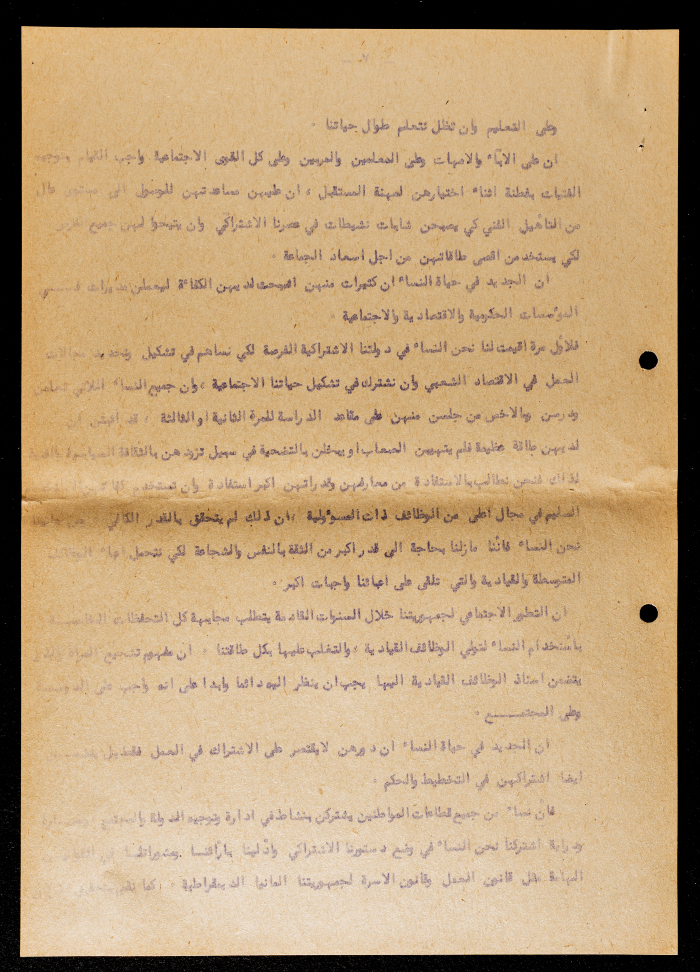 - ٧ -
وعلى التعليم وان نظل نتعلم طوال حياتنا ٠
ان على الآباء والامهات وعلى المعلمين والمربين وعلى كل القوى الاجتماعية واجب القيام بتوجيه
الفتيات بفطنة اثناء اختيارهن لمهنة المستقبل ، ان عليهن مساعدتهن للوصول الى مستوى عال
من التأهيل الفني كي يصبحن شابات نشيطات في عصرنا الاشتراكي وان يتيحوا لهن جميع
لكي يستخدمن اقصى طاقاتهن من اجل اسعاد الجماعة ٠
ان الجديد في حياة النساء ان كثيرات منهن اصبحت لديهن الكفاءة ليعملن مديرات فـــي
المؤسسات الحكومية والاقتصادية والاجتماعية ٠
فلاول مرة اقيمت لنا نحن النساء في دولتنا الاشتراكية الفرصة لكي نساهم في تشكيل وتحديد مجالات
العمل في الاقتصاد الشعبي وان نشترك في تشكيل حياتنا الاجتماعية ، وان جميع النساء اللاتي تعلمن
ودرسن وبالاخص من جلسن منهن على مقاعد الدراسة للمرة الثانية او الثالثة ، قد
لديهن طاقة عظيمة فلم يتهيبن الصعاب او يبخلن بالتضحية في سبيل تزودهن بالثقافة
لذلك فنحن نطالب بالاستفادة من معارفهن وقدراتهن اكبر استفادة وان تستخدم
السليم في مجال اعلى من الوظائف ذات المسؤولية ، ان ذلك لم يتحقق بالقدر الكافي
نحن النساء فاننا مازلنا بحاجة الى قدر اكبر من الثقة بالنفس والشجاعة لكي نتحمل اعباء الوظائف
المتوسطة والقيادية والتي تلقي على اعبائنا واجبات اكبر ٠
ان التطور الاجتماعي لجمهوريتنا خلال السنوات القادمة يتطلب مجابهة كل التحفظات
باستخدام النساء لتولي الوظائف القيادية ، والتغلب عليها بكل طاقتنا ، ان مفهوم تشجيع المرأة والذي
يتضمن اسناد الوظائف القيادية اليها يجب ان ينظر اليه دائما وابدا على انه واجب على
وعلى المجتمـــــع ٠
ان الجديد في حياة النساء ان دورهن لايقتصر على الاشتراك في العمل فقط بل
ايضا اشتراكهن في التخطيط والحكم ٠
فان نساء من جميع قطاعات المواطنين يشتركن بنشاط في ادارة وتوجيه الدولة والمجتمع
ودراية اشتركنا نحن النساء في وضع دستورنا الاشتراكي وادلينا بآرائنـا
الهامة مثل قانون العمل وقانون الاسرة لجمهوريتنا المانيا الديمقراطية ، كما